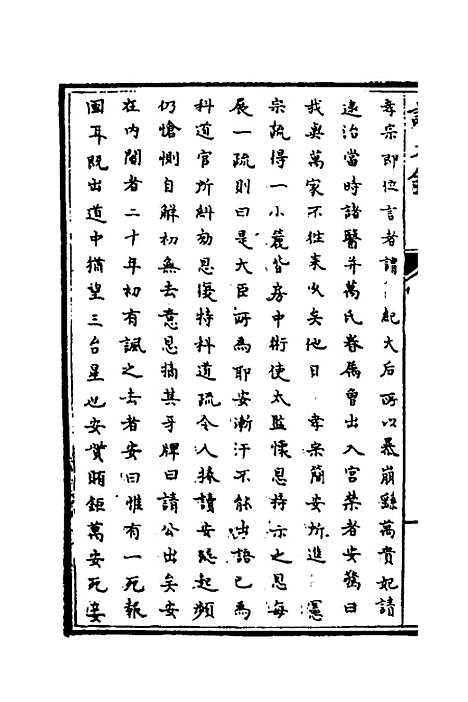 孝宗即位言者謂紀太后所以暴崩繇萬貴妃請
逮治當時諸醫并萬氏眷屬曾出入宮禁者安驚曰
我與萬家不徃來久矣他日孝宗簡安所進憲
宗疏得一小篋皆房中術使太監懷恩持示之恩每
展一疏則曰是大臣所為耶安漸汗不能出語已為
科道官所糾劾恩復持科道疏令人捧讀安跪起頻
仍愴惻自解初無去意恩摘其牙牌曰請公出矣安
在內閣者二十年初有諷之去者安曰惟有一死報
國耳既出道中猶望三台星也安貲賄鉅萬安死妾